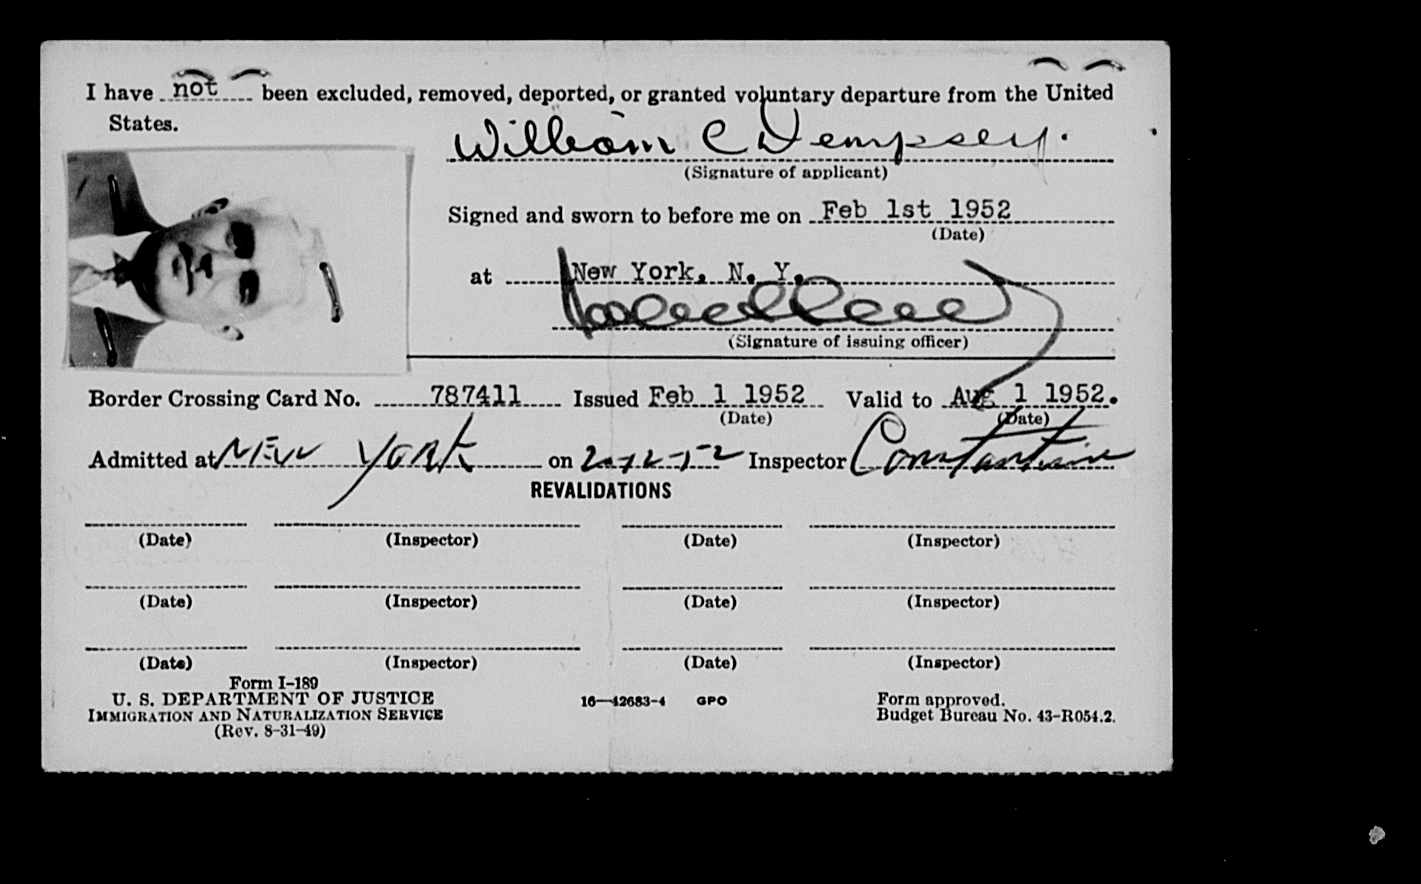 I have not been excluded, removed, deported, or granted voluntary departure from the United
States.
William C Dempsey.
(Signature of applicant)
Signed and sworn to before me on Feb 1st 1952
(Date)
at New York, N. Y.
(Signature of issuing officer)
Border Crossing Card No. 787411 Issued Feb 1 1952 Valid to Aug 1 1952.
(Date) (Date)
Admitted at NEW YORK on 2-12-52 Inspector Constantine
REVALIDATIONS
(Date) (Inspector) (Date) (Inspector)
(Date) (Inspector) (Date) (Inspector)
(Date) (Inspector) (Date) (Inspector)
Form I-189
U. S. DEPARTMENT OF JUSTICE 16—42683-4 GPO Form approved.
IMMIGRATION AND NATURALIZATION SERVICE Budget Bureau No. 43-R054.2.
(Rev. 8-31-49)